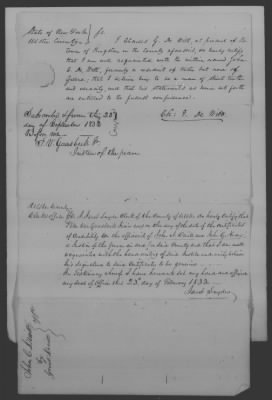 State of New York } ss.
Ulster County
I Charles G. De Witt, at present of the
Town of Kingston in the County aforesaid, do hereby certify
that I am well acquainted with the within named John
C. De Witt, formerly a resident of Ulster but now of
that I believe him to be a man of strict truth
and veracity, and that his statements as herein set forth
are entitled to the fullest confidence.
Subscribed & Sworn this 22d
day of September 1832
Before me
Ch: G. De Witt
Justice of the peace
Ulster County
Clerk's Office I Jacob Snyder Clerk of the County of Ulster do hereby Certify that
on the day of the date of the Certificate
of the affidavit of John C. DeWitt and
a Justice of the peace in and for said County and that I am well
acquainted with the handwriting of said Justice and verily believe
his signature to said Certificate to be genuine
In Testimony whereof I have hereunto set my hand and affixed
my Seal of Office this 23d day of February 1833.
Jacob Snyder
John C. Dewitt